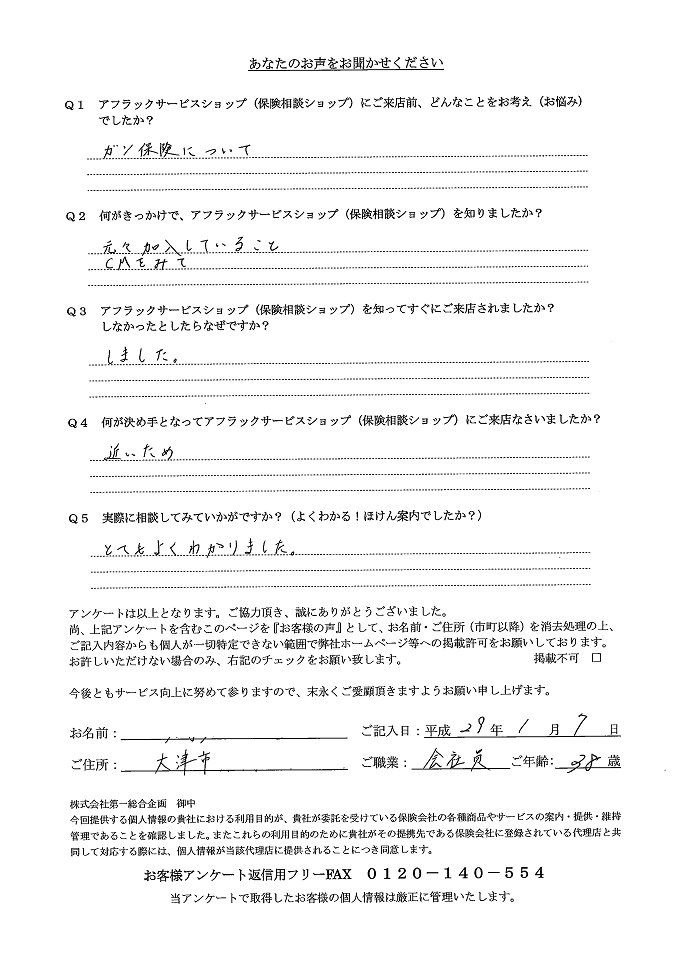 あなたのお声をお聞かせください
Q1 アフラックサービスショップ（保険相談ショップ）にご来店前、どんなことをお考え（お悩み）
でしたか？
ガン保険について
Q2 何がきっかけで、アフラックサービスショップ（保険相談ショップ）を知りましたか？
元々加入していること
CMをみて
Q3 アフラックサービスショップ（保険相談ショップ）を知ってすぐにご来店されましたか？
しなかったとしたらなぜですか？
しました。
Q4 何が決め手となってアフラックサービスショップ（保険相談ショップ）にご来店なさいましたか？
近いため
Q5 実際に相談してみていかがですか？（よくわかる！ほけん案内でしたか？）
とてもよくわかりました。
アンケートは以上となります。ご協力頂き、誠にありがとうございました。
尚、上記アンケートを含むこのページを『お客様の声』として、お名前・ご住所（市町以降）を消去処理の上、
ご記入内容からも個人が一切特定できない範囲で弊社ホームページ等への掲載許可をお願いしております。
お許しいただけない場合のみ、右記のチェックをお願い致します。 掲載不可 □
今後ともサービス向上に努めて参りますので、末永くご愛顧頂きますようお願い申し上げます。
お名前： ご記入日：平成 29 年 1 月 7 日
ご住所： 大津市 ご職業： 会社員 ご年齢： 38 歳
株式会社第一総合企画 御中
今回提供する個人情報の貴社における利用目的が、貴社が委託を受けている保険会社の各種商品やサービスの案内・提供・維持
管理であることを確認しました。またこれらの利用目的のために貴社がその提携先である保険会社に登録されている代理店と共
同して対応する際には、個人情報が当該代理店に提供されることにつき同意します。
お客様アンケート返信用フリーFAX 0120－140－554
当アンケートで取得したお客様の個人情報は厳正に管理いたします。